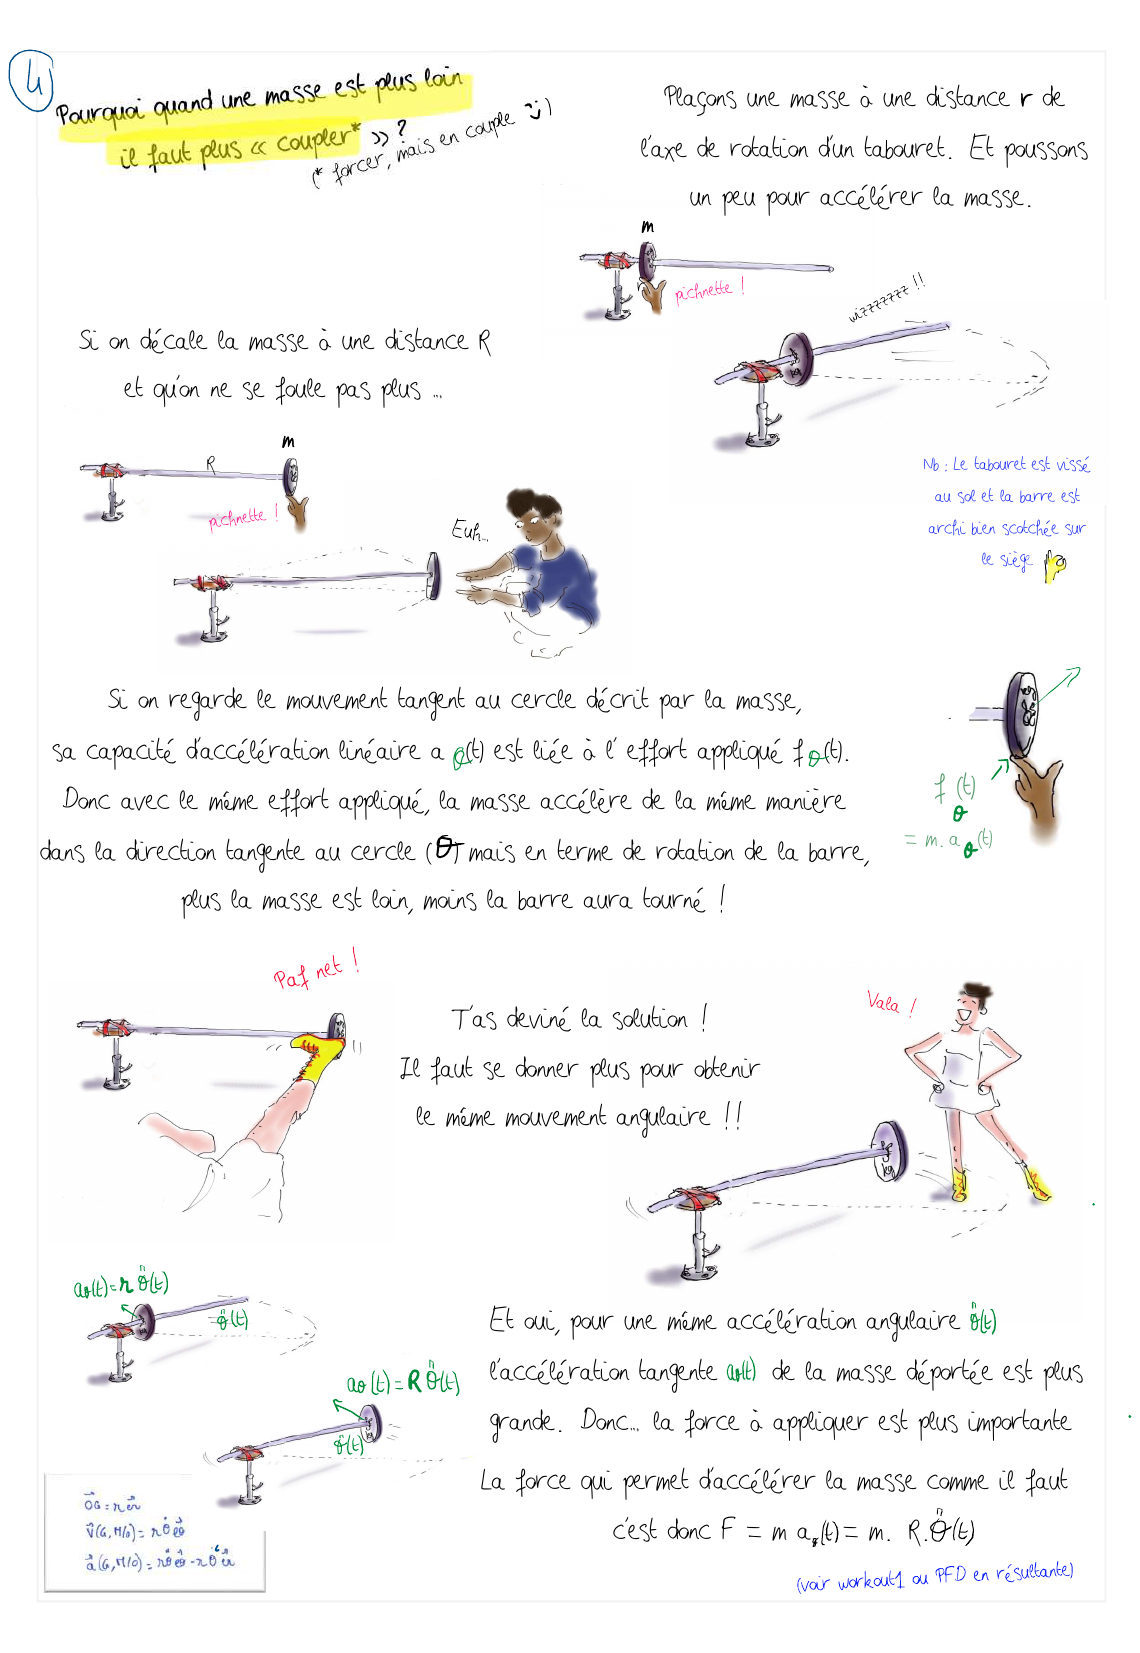 4
Pourquoi quand une masse est plus loin
il faut plus « coupler* » ?
(* forcer, mais en couple :))
Plaçons une masse à une distance r de
l'axe de rotation d'un tabouret. Et poussons
un peu pour accélérer la masse.
m
pichnette !
wizzzzzzz !!
Si on décale la masse à une distance R
et qu'on ne se foule pas plus ...
m
R
pichnette !
Euh...
Nb : Le tabouret est vissé
au sol et la barre est
archi bien scotchée sur
le siège
Si on regarde le mouvement tangent au cercle décrit par la masse,
sa capacité d'accélération linéaire a θ(t) est liée à l' effort appliqué f θ(t).
Donc avec le même effort appliqué, la masse accélère de la même manière
dans la direction tangente au cercle (θ) mais en terme de rotation de la barre,
plus la masse est loin, moins la barre aura tourné !
f θ (t)
= m. a θ (t)
Paf net !
T'as deviné la solution !
Il faut se donner plus pour obtenir
le même mouvement angulaire !!
Vala !
kg
aθ(t) = r θ̈(t)
= θ̈(t)
aθ (t) = R θ̈(t)
θ̈(t)
Et oui, pour une même accélération angulaire θ̈(t)
l'accélération tangente aθ(t) de la masse déportée est plus
grande. Donc... la force à appliquer est plus importante
La force qui permet d'accélérer la masse comme il faut
c'est donc F = m aθ(t) = m. R.θ̈(t)
(voir workout1 ou PFD en résultante)
OG⃗ = r e⃗r
V⃗(G,M/0) = r θ̇ e⃗θ
a⃗(G,M/0) = r θ̈ e⃗θ - r θ̇² e⃗r